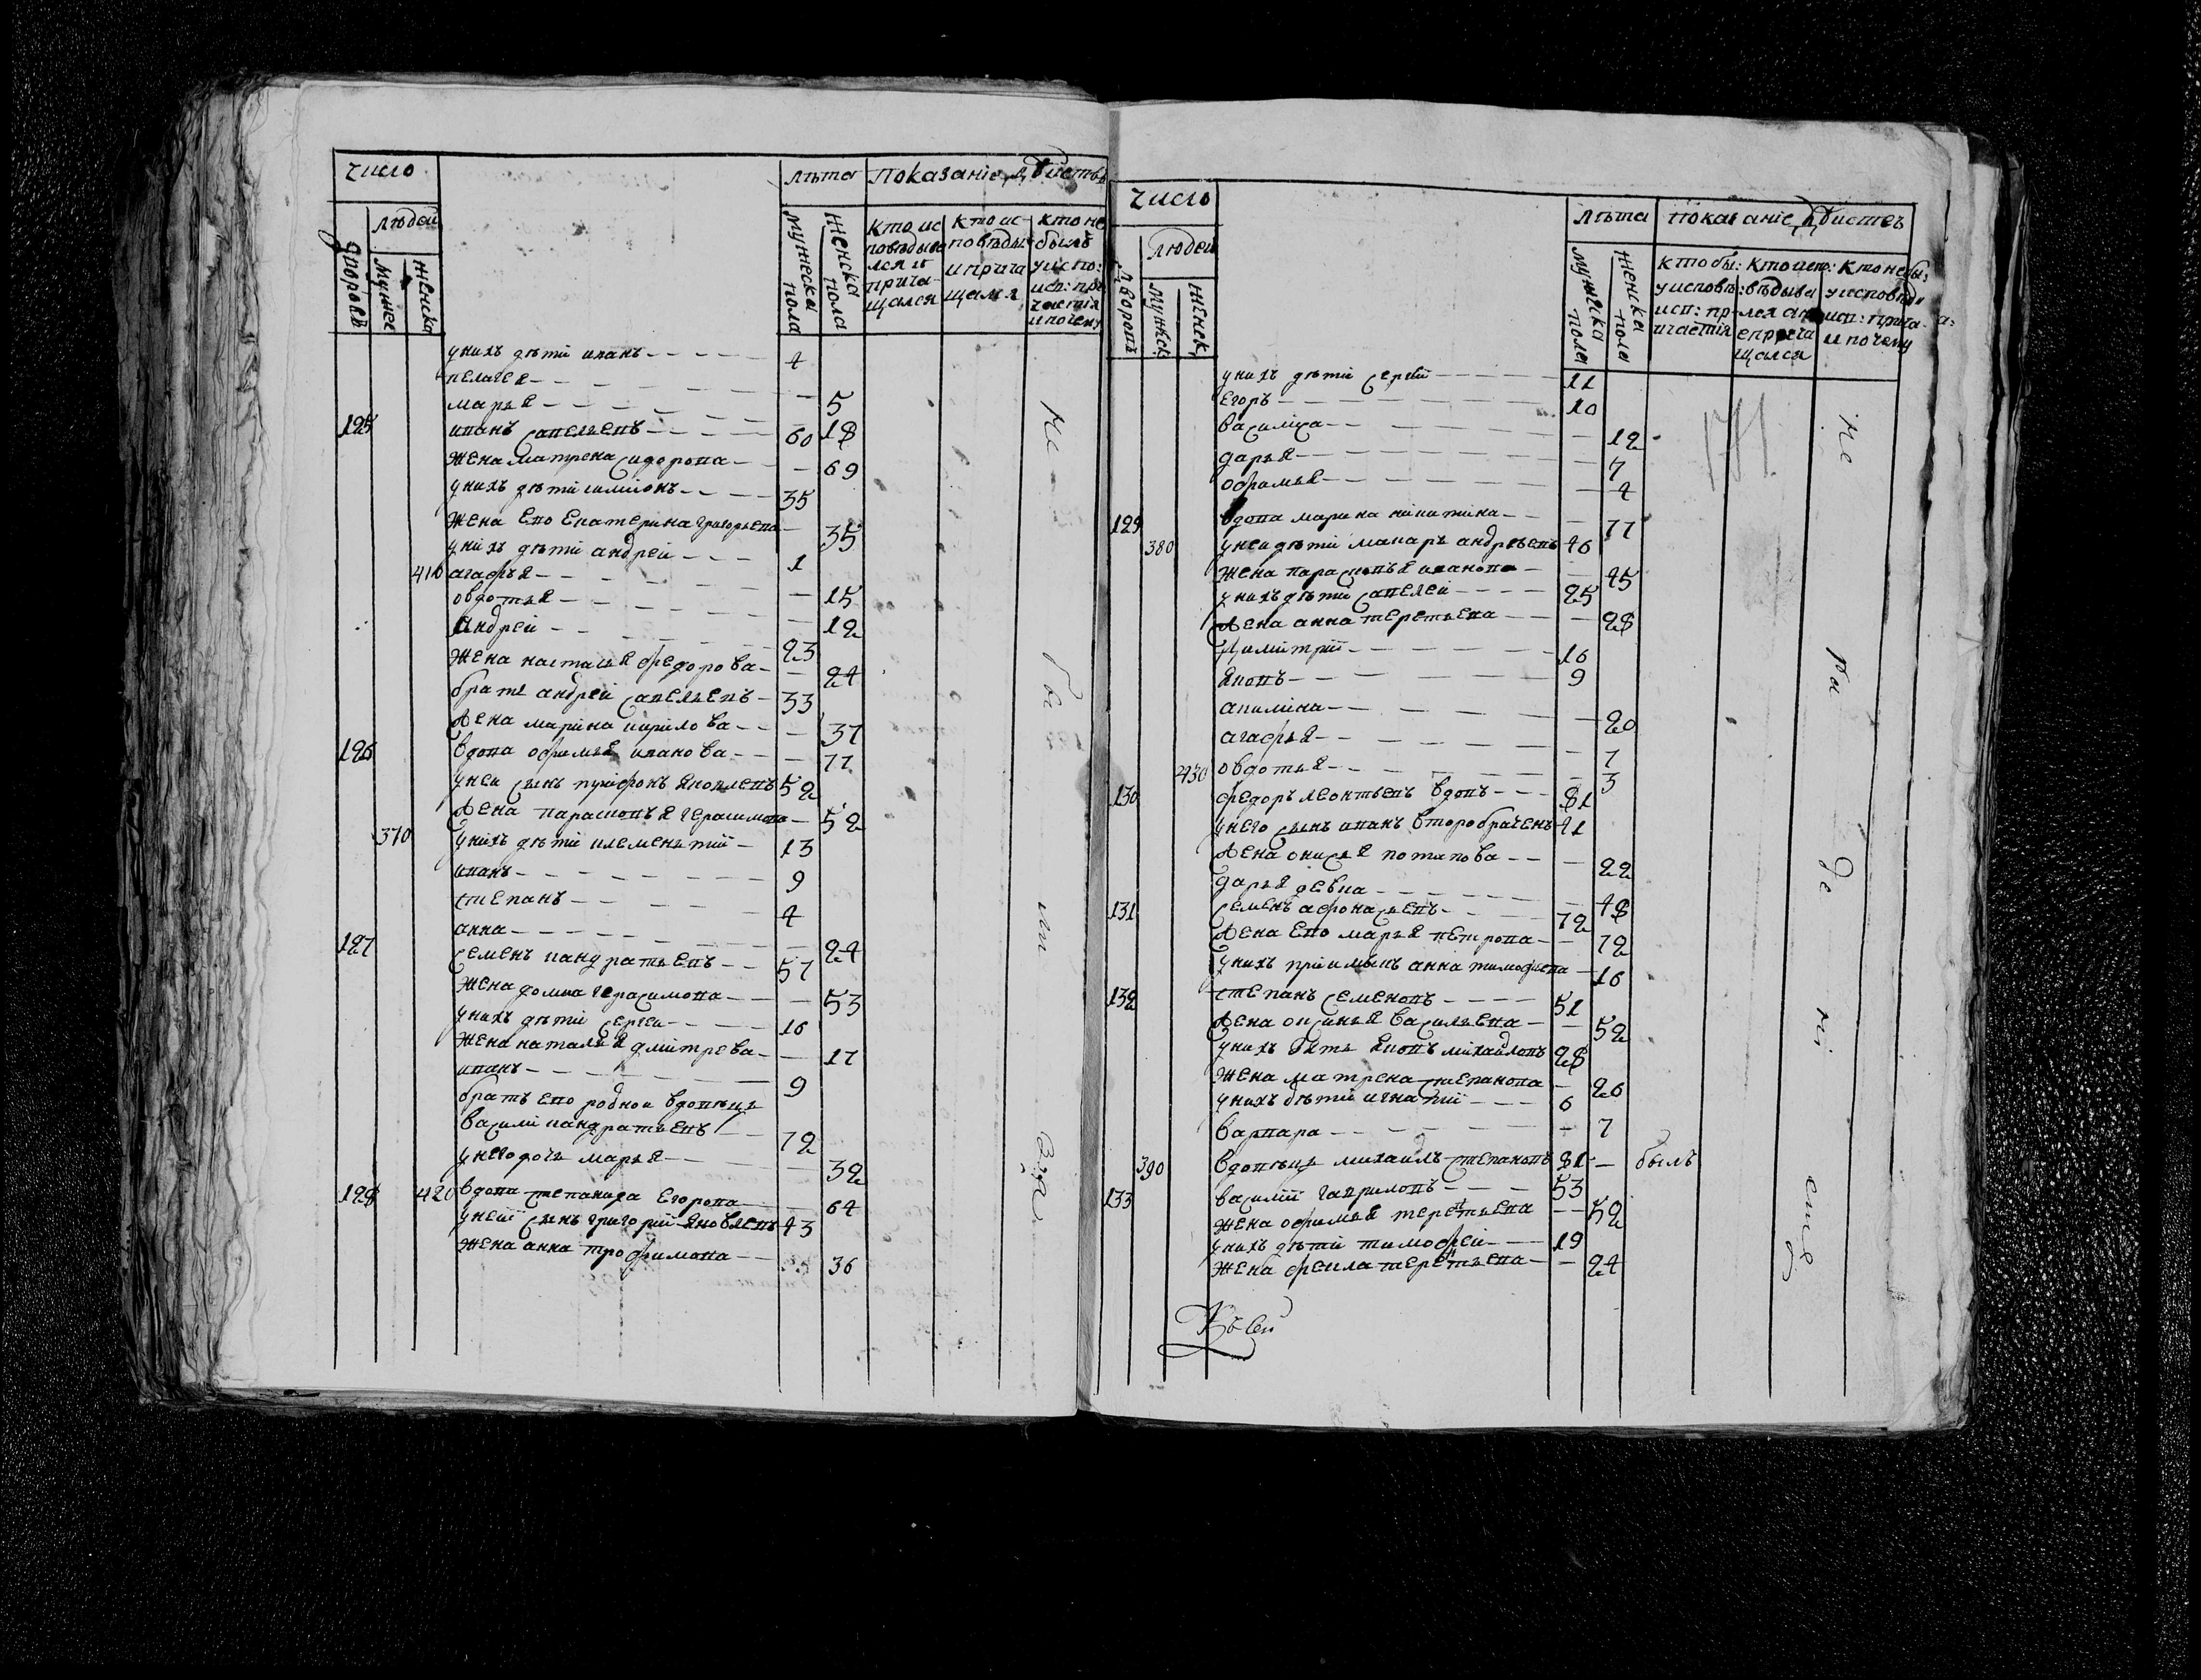 число
лѣта показаніе дѣиствъ
людей
дворовъ
мужес
женска
мужеска пола
женска пола
кто ис
повѣдыва
лся и
прича
щался
кто ис
повѣды
и прича
щался
кто не
былъ
у испо:
исп: при
частія
и почему
у нихъ дѣти иванъ 4
пелагея 5
марья 18
125 иванъ савельевъ 60
жена матрена сидорова 69
у нихъ дѣти симионъ 35
жена ево екатерина григорьева 35
у нихъ дѣти андреи 1
410 агафья 15
овдотья 12
андреи 23
жена настасья федорова 24
братъ андреи савельевъ 33
жена марина кирилова 37
126 вдова офимья иванова 77
у неи сынъ трифонъ яковлевъ 52
жена парасковья герасимова 52
370 у нихъ дѣти клементии 13
иванъ 9
степанъ 4
анна 24
127 семенъ кандратьевъ 57
жена домна герасимова 53
у нихъ дѣти сергеи 16
жена наталья дмитрева 17
иванъ 9
братъ ево роднои вдовецъ
василии кандратьевъ 72
у него дочь марья 32
128 420 вдова степанида егорова 64
у неи сынъ григории яковлевъ 43
жена анна трофимова 36
не
бы
ли
число
лѣта показаніе дѣиствъ
людей
дворовъ
мужеск
женск
мужеска пола
женска пола
кто бы:
у исповѣ:
исп: пр
ичастія
кто испо:
вѣдыва
лся а
не прича
щался
кто не бы:
у исповѣди
исп: прича
и почему
у нихъ дѣти сергѣи 11
егоръ 10
василиса 12
дарья 7
офимья 4
129 вдова марина никитина 77
380 у неи дѣти макаръ андрѣевъ 46
жена парасковья иванова 45
у нихъ дѣти савелеи 25
жена анна терентьева 28
димитрии 16
яковъ 9
акилина 20
агафья 7
430 овдотья 3
130 федоръ леонтьевъ вдовъ 81
у него сынъ иванъ второбраченъ 41
жена онисья потапова 22
дарья девка 48
131 семенъ афонасьевъ 72
жена ево марья петрова 72
у нихъ приимышъ анна тимофиева 16
132 степанъ семеновъ 51
жена оксинья васильева 52
у нихъ зять яковъ михаиловъ 28
жена матрена степанова 26
у нихъ дѣти игнатии 6
варвара 7
390 вдовецъ михаилъ степановъ 81 былъ
133 василии гавриловъ 53
жена офимья терентьева 52
у нихъ дѣти тимофеи 19
жена фекла терентьева 24
не
ра
де
ні
емъ